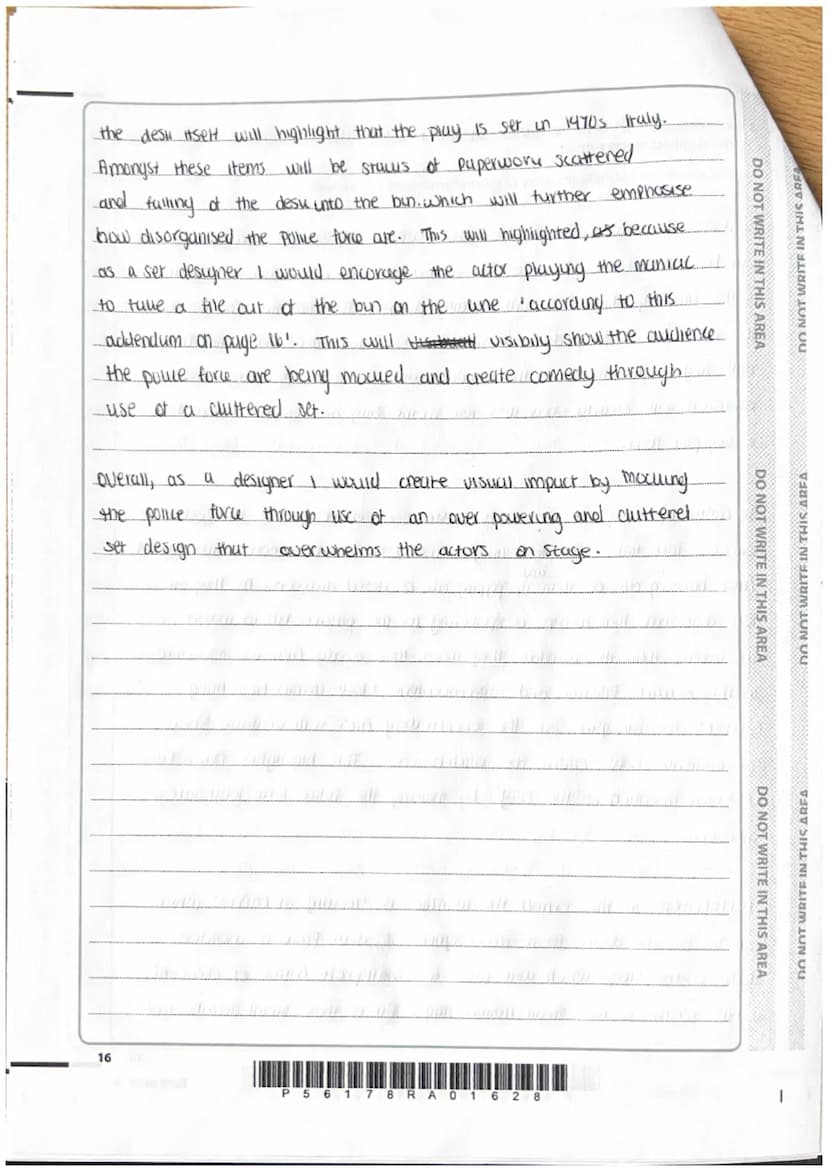 the desk itself will highlight that the play is set in 1970s Italy.
Amongst these items will be stacks of paperwork scattered
and falling of the desk into the bin. which will further emphasise
how disorganised the police force are. This will highlighted, as because
as a set designer I would encorage the actor playing the maniac
to take a file out of the bin on the line 'according to this
addendum on page 16'. This will visibily show the audience
the police force are being mocked and create comedy through
use of a cluttered set.
Overall, as a designer I would create visual impact by mocking
the police force through use of an over powering and cluttered
set design that overwhelms the actors on stage.
DO NOT WRITE IN THIS AREA
DO NOT WRITE IN THIS AREA
DO NOT WRITE IN THIS AREA
DO NOT WRITE IN THIS AREA
DO NOT WRITE IN THIS AREA
DO NOT WRITE IN THIS AREA
16
P56178RA01628